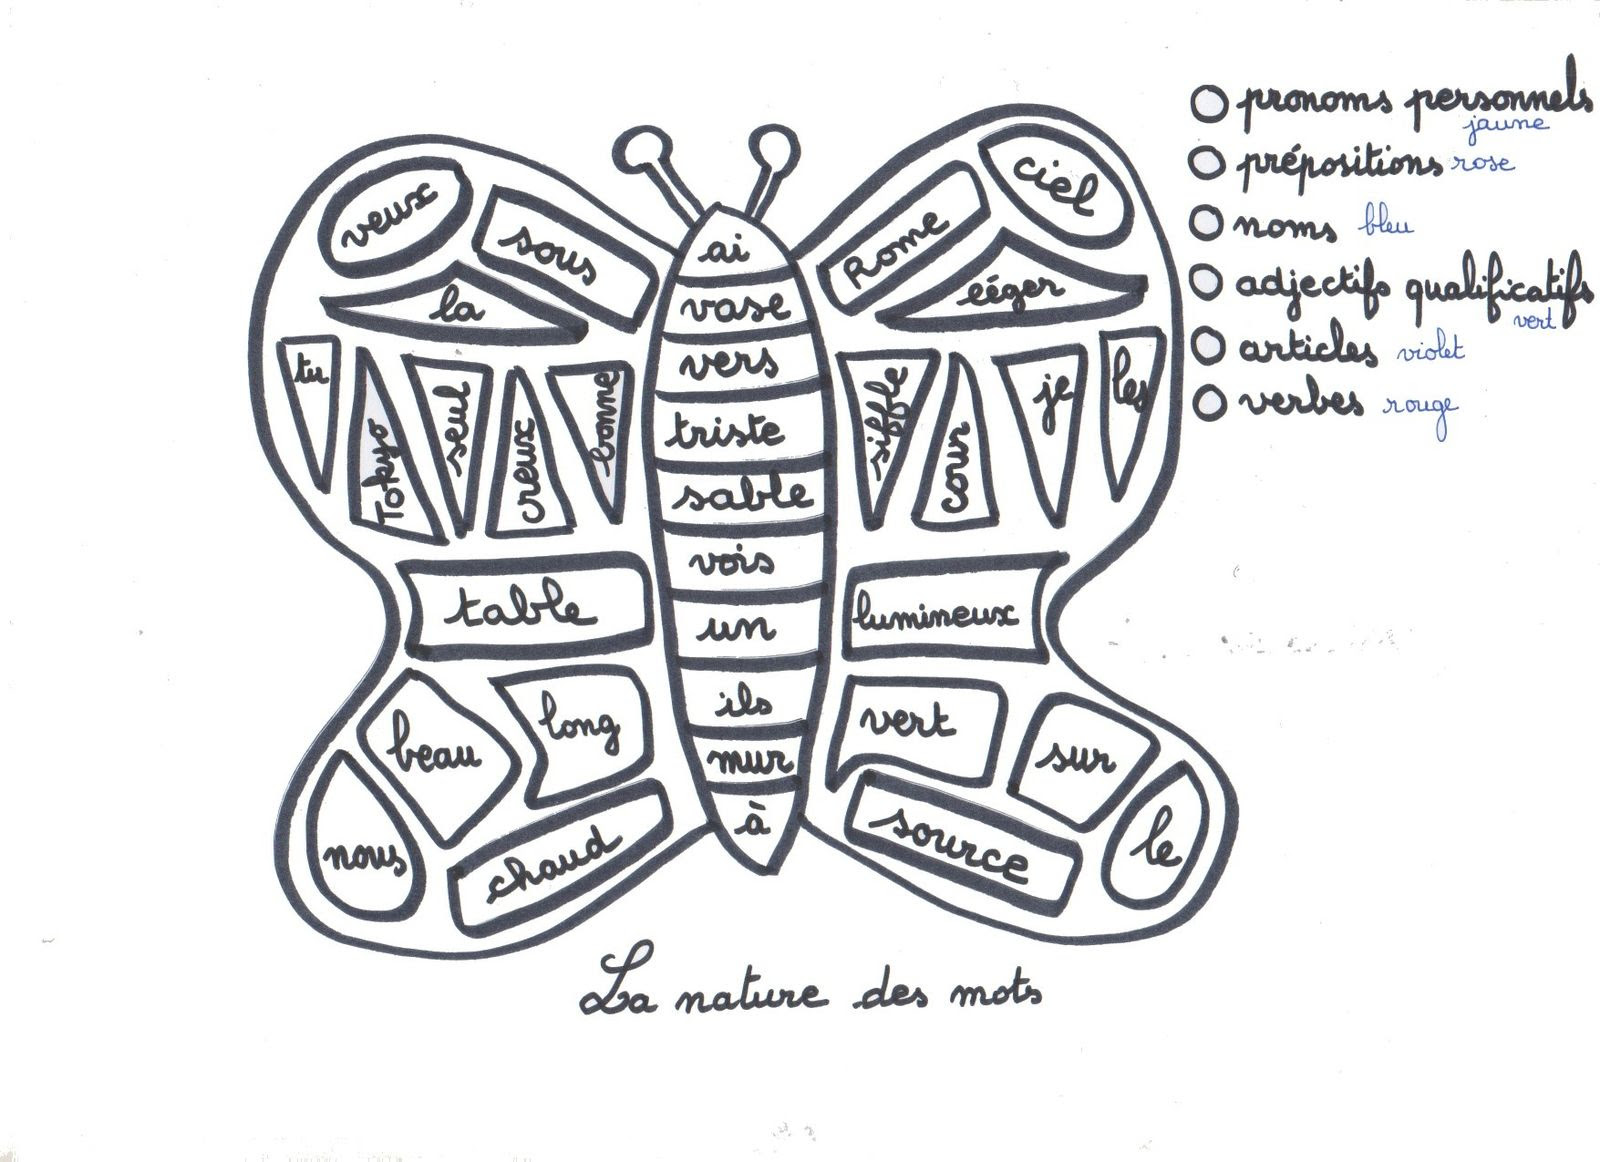 pronoms personnels
jaune
prépositions rose
noms bleu
adjectifs qualificatifs
vert
articles violet
verbes rouge
veux
sous
la
tu
Tokyo
seul
creux
bonne
table
beau
long
nous
chaud
ai
vase
vers
triste
sable
vois
un
ils
mur
à
Rome
ciel
siffle
cour
je
les
lumineux
vert
sur
source
le
La nature des mots